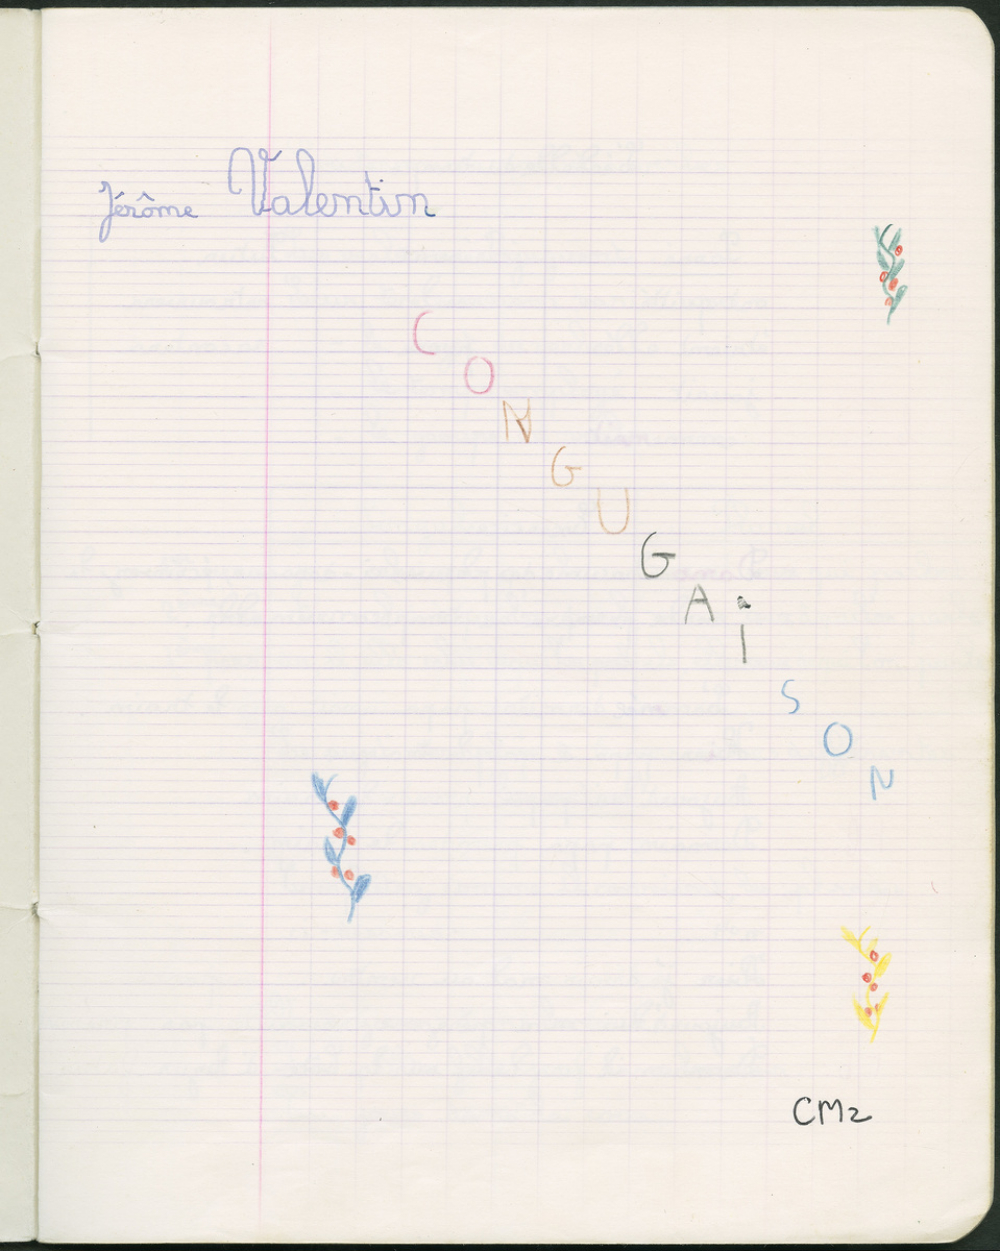 Jérôme Valentin
CONGUGAiSON
CM2